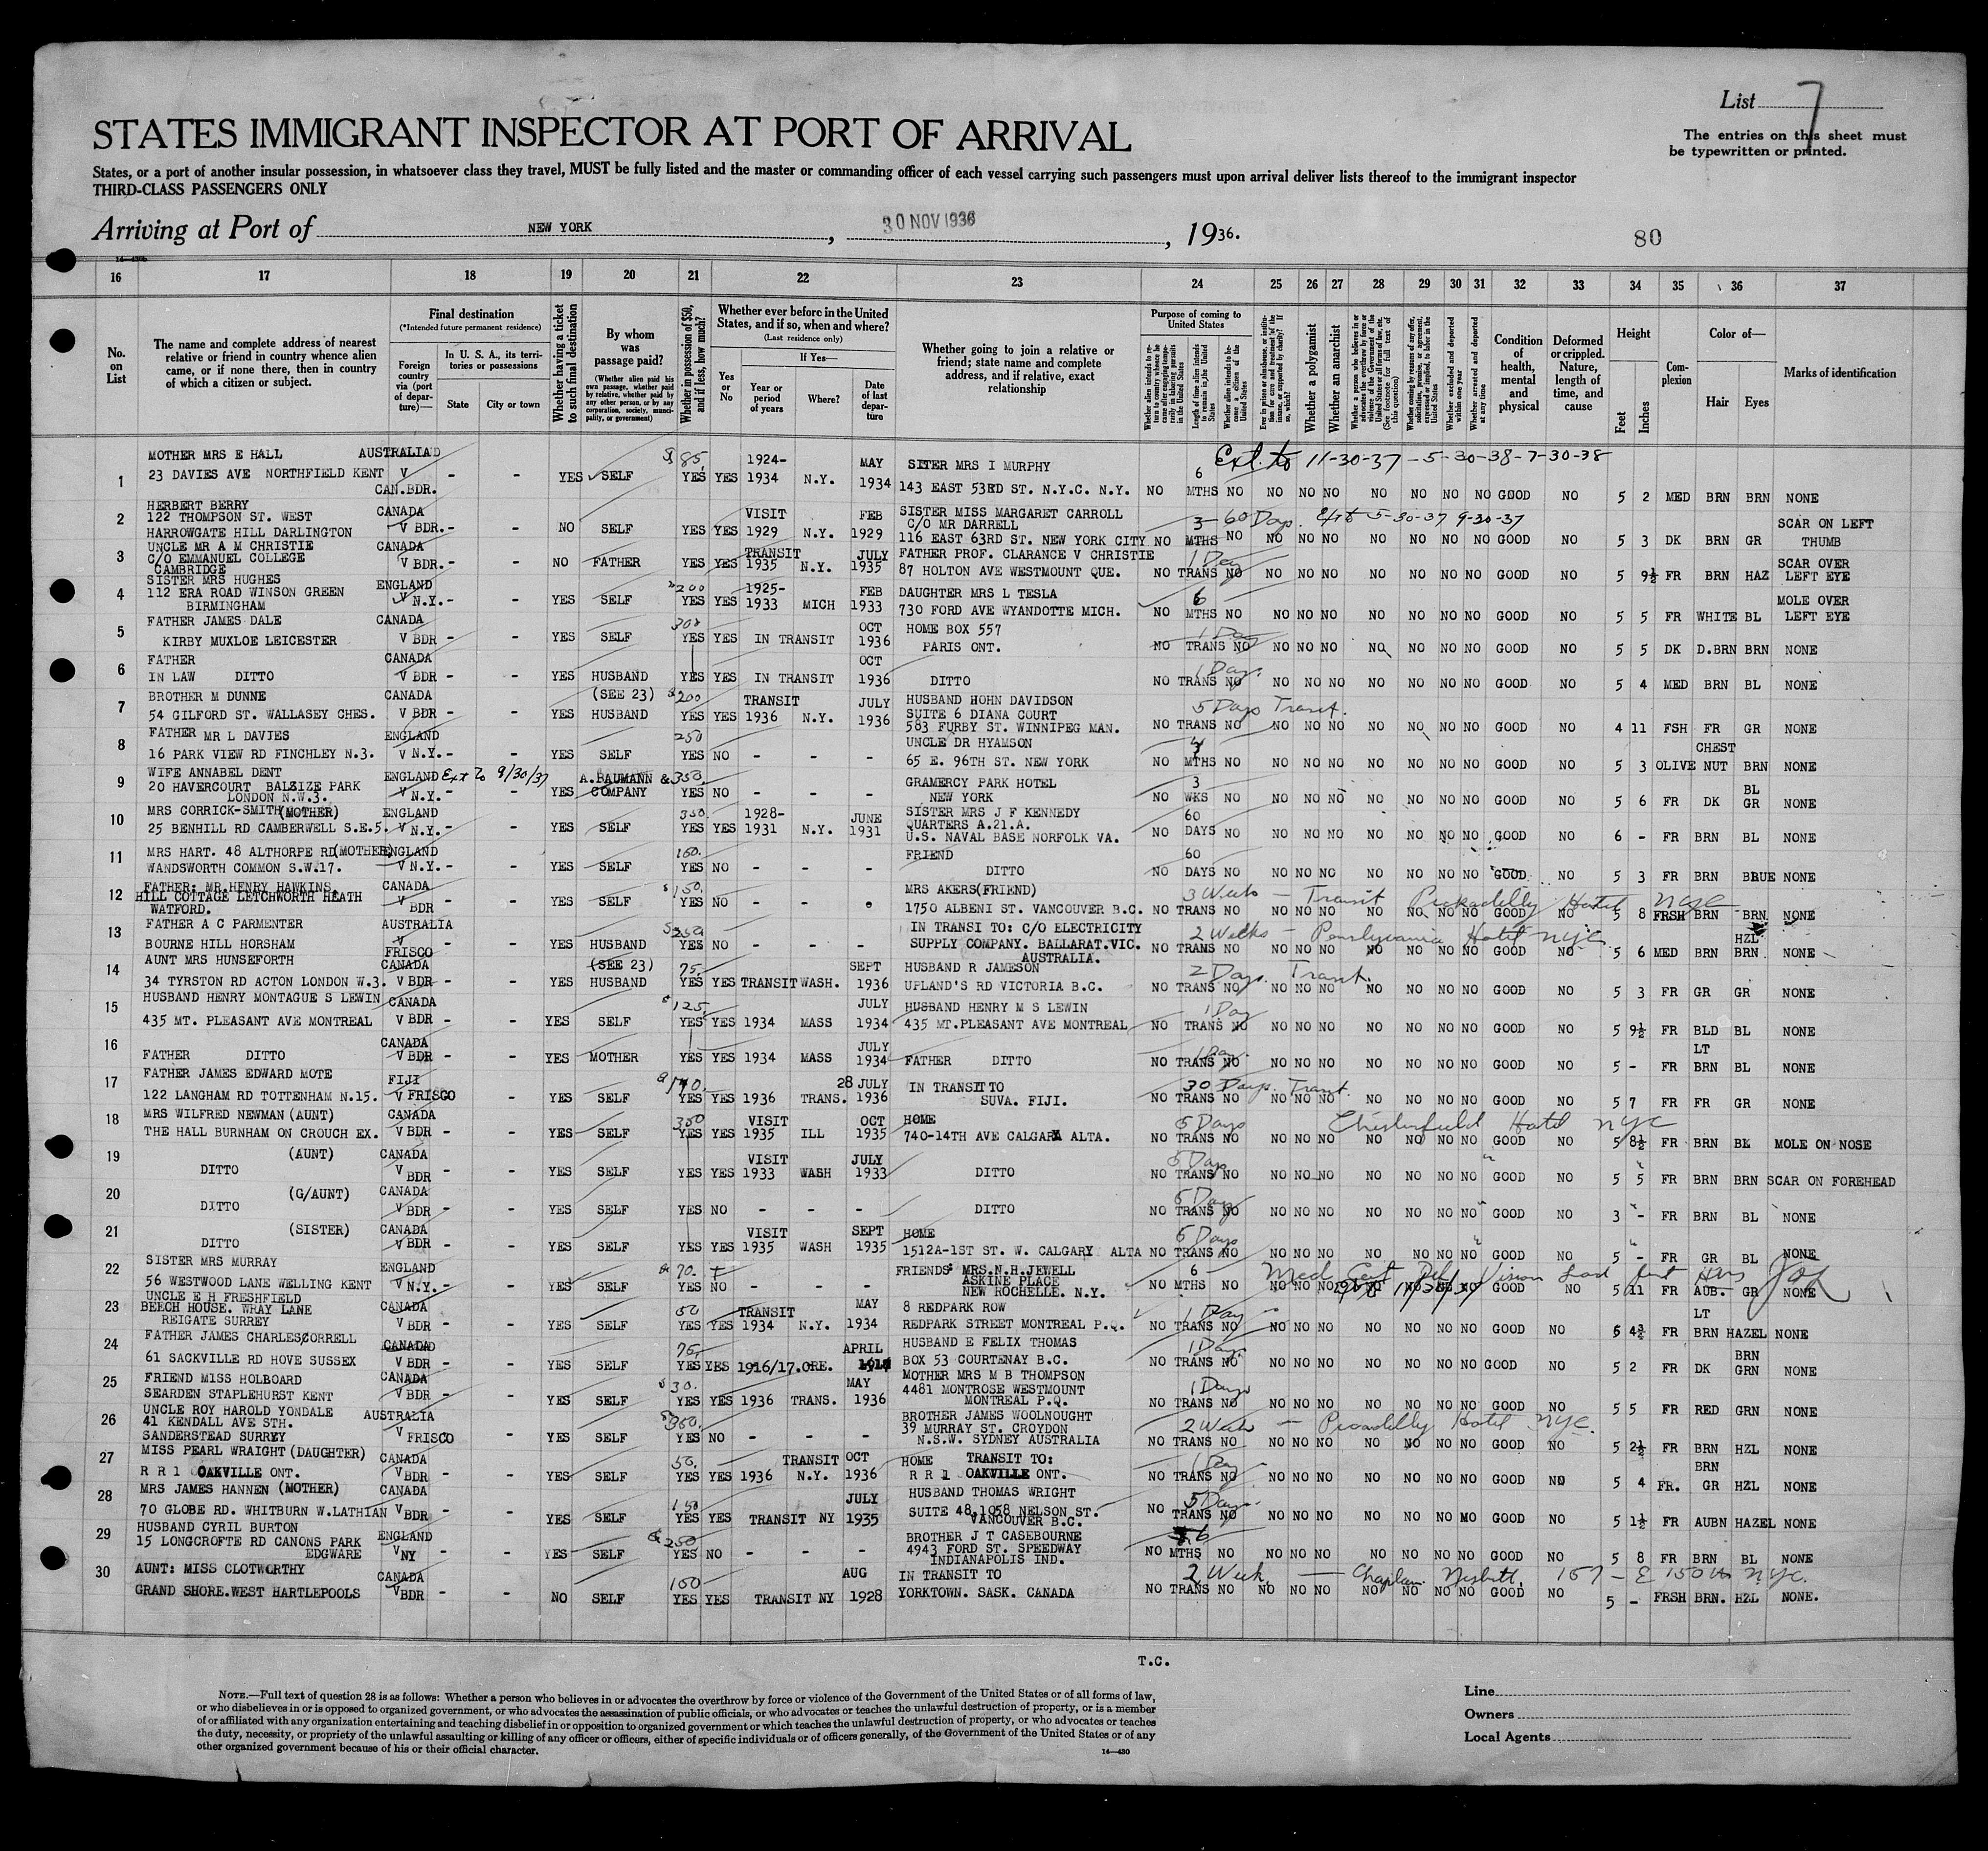 List 7
The entries on this sheet must
be typewritten or printed.
STATES IMMIGRANT INSPECTOR AT PORT OF ARRIVAL
States, or a port of another insular possession, in whatsoever class they travel, MUST be fully listed and the master or commanding officer of each vessel carrying such passengers must upon arrival deliver lists thereof to the immigrant inspector
THIRD-CLASS PASSENGERS ONLY
Arriving at Port of NEW YORK, 30 NOV 1936, 1936.
80
16 17 18 19 20 21 22 23 24 25 26 27 28 29 30 31 32 33 34 35 36 37
No. on List
The name and complete address of nearest relative or friend in country whence alien came, or if none there, then in country of which a citizen or subject.
Final destination
(*Intended future permanent residence)
Foreign country via (port of departure)—
In U. S. A., its territories or possessions
State City or town
Whether having a ticket to such final destination
By whom was passage paid?
(Whether alien paid his own passage, whether paid by relative, whether paid by any other person, or by any corporation, society, municipality, or government)
Whether in possession of $50, and if less, how much?
Whether ever before in the United States, and if so, when and where?
(Last residence only)
If Yes—
Yes or No
Year or period of years
Where?
Date of last departure
Whether going to join a relative or friend; state name and complete address, and if relative, exact relationship
Purpose of coming to United States
Whether a polygamist
Whether an anarchist
Condition of health, mental and physical
Deformed or crippled. Nature, length of time, and cause
Height
Feet Inches
Complexion
Color of—
Hair Eyes
Marks of identification
MOTHER MRS E HALL AUSTRALIA $85. 1924- MAY SITER MRS I MURPHY 6 Ext. to 11-30-37 - 5-30-38 - 7-30-38
1 23 DAVIES AVE NORTHFIELD KENT V CAN.BDR. - - YES SELF YES YES 1934 N.Y. 1934 143 EAST 53RD ST. N.Y.C. N.Y. NO MTHS NO NO NO NO NO NO NO NO GOOD NO 5 2 MED BRN BRN NONE
HERBERT BERRY
2 122 THOMPSON ST. WEST CANADA VISIT FEB SISTER MISS MARGARET CARROLL
C/O MR DARRELL 3 60 Days. Ext 5-30-37 9-30-37 SCAR ON LEFT
HARROWGATE HILL DARLINGTON V BDR. - - NO SELF YES YES 1929 N.Y. 1929 116 EAST 63RD ST. NEW YORK CITY NO MTHS NO NO NO NO NO NO NO NO GOOD NO 5 3 DK BRN GR THUMB
3 UNCLE MR A M CHRISTIE CANADA TRANSIT JULY FATHER PROF. CLARANCE V CHRISTIE 1 Day SCAR OVER
C/O EMMANUEL COLLEGE V BDR. - - NO FATHER YES YES 1935 N.Y. 1935 87 HOLTON AVE WESTMOUNT QUE. NO TRANS NO NO NO NO NO NO NO NO GOOD NO 5 9½ FR BRN HAZ LEFT EYE
CAMBRIDGE
SISTER MRS HUGHES ENGLAND $200 1925- FEB DAUGHTER MRS L TESLA 6 MOLE OVER
4 112 ERA ROAD WINSON GREEN V N.Y. - - YES SELF YES YES 1933 MICH 1933 730 FORD AVE WYANDOTTE MICH. NO MTHS NO NO NO NO NO NO NO NO GOOD NO 5 5 FR WHITE BL LEFT EYE
BIRMINGHAM
5 FATHER JAMES DALE CANADA OCT HOME BOX 557 1 Day
KIRBY MUXLOE LEICESTER V BDR - - YES SELF YES YES IN TRANSIT 1936 PARIS ONT. NO TRANS NO NO NO NO NO NO NO NO GOOD NO 5 5 DK D.BRN BRN NONE
6 FATHER CANADA OCT 1 Days.
IN LAW DITTO V BDR - - YES HUSBAND YES YES IN TRANSIT 1936 DITTO NO TRANS NO NO NO NO NO NO NO NO GOOD NO 5 4 MED BRN BL NONE
7 BROTHER M DUNNE CANADA (SEE 23) $200 TRANSIT JULY HUSBAND HOHN DAVIDSON 5 Days Transit.
SUITE 6 DIANA COURT
54 GILFORD ST. WALLASEY CHES. V BDR - - YES HUSBAND YES YES 1936 N.Y. 1936 583 FURBY ST. WINNIPEG MAN. NO TRANS NO NO NO NO NO NO NO NO GOOD NO 4 11 FSH FR GR NONE
8 FATHER MR L DAVIES ENGLAND 250 UNCLE DR HYAMSON CHEST
16 PARK VIEW RD FINCHLEY N.3. V N.Y. - - YES SELF YES NO - - - 65 E. 96TH ST. NEW YORK NO MTHS NO NO NO NO NO NO NO NO GOOD NO 5 3 OLIVE NUT BRN NONE
9 WIFE ANNABEL DENT ENGLAND Ext to 9/30/37 A.BAUMANN & 350. GRAMERCY PARK HOTEL 3 BL
20 HAVERCOURT BALSIZE PARK V N.Y. - - YES COMPANY YES NO - - - NEW YORK NO WKS NO NO NO NO NO NO NO NO GOOD NO 5 6 FR DK GR NONE
LONDON N.W.3.
10 MRS CORRICK-SMITH (MOTHER) ENGLAND 350. 1928- JUNE SISTER MRS J F KENNEDY 60
QUARTERS A.21.A.
25 BENHILL RD CAMBERWELL S.E.5. V N.Y. - - YES SELF YES YES 1931 N.Y. 1931 U.S. NAVAL BASE NORFOLK VA. NO DAYS NO NO NO NO NO NO NO NO GOOD NO 6 - FR BRN BL NONE
11 MRS HART. 48 ALTHORPE RD (MOTHER) ENGLAND 150. FRIEND 60
WANDSWORTH COMMON S.W.17. V N.Y. - - YES SELF YES NO - - - DITTO NO DAYS NO NO NO NO NO NO NO NO GOOD NO 5 3 FR BRN BRUE NONE
12 FATHER: MR.HENRY HAWKINS. CANADA $150. MRS AKERS(FRIEND) 3 Weeks — Transit Piccadilly Hotel NYC
HILL COTTAGE LETCHWORTH HEATH V BDR - - YES SELF YES NO - - 1750 ALBENI ST. VANCOUVER B.C. NO TRANS NO NO NO NO NO NO NO NO GOOD NO 5 8 FRSH BRN BRN NONE
WATFORD.
13 FATHER A C PARMENTER AUSTRALIA $250 IN TRANSI TO: C/O ELECTRICITY 2 Weeks — Pennsylvania Hotel NYC HZL
BOURNE HILL HORSHAM V FRISCO - - YES HUSBAND YES NO - - - SUPPLY COMPANY. BALLARAT.VIC. NO TRANS NO NO NO NO NO NO NO NO GOOD NO 5 6 MED BRN BRN NONE
AUSTRALIA.
14 AUNT MRS HUNSEFORTH CANADA (SEE 23) 75. SEPT HUSBAND R JAMESON 2 Days. Transit.
34 TYRSTON RD ACTON LONDON W.3. V BDR - - YES HUSBAND YES YES TRANSIT WASH. 1936 UPLAND'S RD VICTORIA B.C. NO TRANS NO NO NO NO NO NO NO NO GOOD NO 5 3 FR GR GR NONE
15 HUSBAND HENRY MONTAGUE S LEWIN CANADA $125. JULY HUSBAND HENRY M S LEWIN 1 Day
435 MT. PLEASANT AVE MONTREAL V BDR - - YES SELF YES YES 1934 MASS 1934 435 MT.PLEASANT AVE MONTREAL NO TRANS NO NO NO NO NO NO NO NO GOOD NO 5 9½ FR BLD BL NONE
16 CANADA JULY 1 Day. LT
FATHER DITTO V BDR - - YES MOTHER YES YES 1934 MASS 1934 FATHER DITTO NO TRANS NO NO NO NO NO NO NO NO GOOD NO 5 - FR BRN BL NONE
17 FATHER JAMES EDWARD MOTE FIJI 28 JULY IN TRANSIT TO 30 Days. Transit.
122 LANGHAM RD TOTTENHAM N.15. V FRISCO - YES SELF YES YES 1936 TRANS. 1936 SUVA. FIJI. NO TRANS NO NO NO NO NO NO NO NO GOOD NO 5 7 FR FR GR NONE
18 MRS WILFRED NEWMAN (AUNT) CANADA 350 VISIT OCT HOME 5 Days Chesterfield Hotel NYC
THE HALL BURNHAM ON CROUCH EX. V BDR - - YES SELF YES YES 1935 ILL 1935 740-14TH AVE CALGARY ALTA. NO TRANS NO NO NO NO NO NO NO NO GOOD NO 5 8½ FR BRN BL MOLE ON NOSE
19 (AUNT) CANADA VISIT JULY 5 Days
DITTO V BDR - - YES SELF YES YES 1933 WASH 1933 DITTO NO TRANS NO NO NO NO NO NO NO NO GOOD NO 5 5 FR BRN BRN SCAR ON FOREHEAD
20 (G/AUNT) CANADA 5 Days
DITTO V BDR - - YES SELF YES NO - - - DITTO NO TRANS NO NO NO NO NO NO NO NO GOOD NO 3 - FR BRN BL NONE
21 (SISTER) CANADA VISIT SEPT HOME 5 Days
DITTO V BDR - - YES SELF YES YES 1935 WASH 1935 1512A-1ST ST. W. CALGARY ALTA NO TRANS NO NO NO NO NO NO NO NO GOOD NO 5 - FR GR BL NONE
22 SISTER MRS MURRAY ENGLAND 70. FRIENDS: MRS.N.H.JEWELL 6 Med Cert Def Vision
ASKINE PLACE
56 WESTWOOD LANE WELLING KENT V N.Y. - - YES SELF YES NO - - - NEW ROCHELLE. N.Y. NO MTHS NO NO NO GOOD NO 5 11 FR AUB. GR NONE
23 UNCLE E H FRESHFIELD CANADA 50 TRANSIT MAY 8 REDPARK ROW 1 Day LT
BEECH HOUSE. WRAY LANE V BDR - - YES SELF YES YES 1934 N.Y. 1934 REDPARK STREET MONTREAL P.Q. NO TRANS NO NO NO NO NO NO NO NO GOOD NO 5 4¾ FR BRN HAZEL NONE
REIGATE SURREY
24 FATHER JAMES CHARLES CORRELL CANADA 75. APRIL HUSBAND E FELIX THOMAS 1 Days BRN
61 SACKVILLE RD HOVE SUSSEX V BDR - - YES SELF YES YES 1916/17.ORE. BOX 53 COURTENAY B.C. NO TRANS NO NO NO NO NO NO NO NO GOOD NO 5 2 FR DK GRN NONE
25 FRIEND MISS HOLBOARD CANADA $30. MAY MOTHER MRS M B THOMPSON 1 Days
4481 MONTROSE WESTMOUNT
SEARDEN STAPLEHURST KENT V BDR - - YES SELF YES YES 1936 TRANS. 1936 MONTREAL P.Q. NO TRANS NO NO NO NO NO NO NO NO GOOD NO 5 5 FR RED GRN NONE
26 UNCLE ROY HAROLD YONDALE AUSTRALIA BROTHER JAMES WOOLNOUGHT 2 Weeks — Piccadilly Hotel NYC.
41 KENDALL AVE STH. 39 MURRAY ST. CROYDON
SANDERSTEAD SURREY V FRISCO - YES SELF YES NO - - - N.S.W. SYDNEY AUSTRALIA NO TRANS NO NO NO NO NO NO NO NO GOOD NO 5 2½ FR BRN HZL NONE
27 MISS PEARL WRAIGHT (DAUGHTER) CANADA 50. TRANSIT OCT HOME TRANSIT TO: 1 Day BRN
R R 1 OAKVILLE ONT. V BDR - - YES SELF YES YES 1936 N.Y. 1936 R R 1 OAKVILLE ONT. NO TRANS NO NO NO NO NO NO NO NO GOOD NO 5 4 FR. GR HZL NONE
28 MRS JAMES HANNEN (MOTHER) CANADA 150 JULY HUSBAND THOMAS WRIGHT 5 Days
70 GLOBE RD. WHITBURN W.LATHIAN V BDR - YES SELF YES YES TRANSIT NY 1935 SUITE 48,1058 NELSON ST. NO TRANS NO NO NO NO NO NO NO NO GOOD NO 5 1½ FR AUBN HAZEL NONE
VANCOUVER B.C.
29 HUSBAND CYRIL BURTON ENGLAND $250 BROTHER J T CASEBOURNE 6
15 LONGCROFTE RD CANONS PARK V NY - - YES SELF YES NO - - - 4943 FORD ST. SPEEDWAY NO MTHS NO NO NO NO NO NO NO NO GOOD NO 5 8 FR BRN BL NONE
EDGWARE INDIANAPOLIS IND.
30 AUNT: MISS CLOTWORTHY CANADA 100 AUG IN TRANSIT TO 2 Week — Nesbitt, 157 - E 150 th NYC.
GRAND SHORE.WEST HARTLEPOOLS V BDR - - NO SELF YES YES TRANSIT NY 1928 YORKTOWN. SASK. CANADA NO TRANS NO NO NO NO NO NO NO NO GOOD NO 5 - FRSH BRN. HZL NONE.
T.C.
NOTE.—Full text of question 28 is as follows: Whether a person who believes in or advocates the overthrow by force or violence of the Government of the United States or of all forms of law,
or who disbelieves in or is opposed to organized government, or who advocates the assassination of public officials, or who advocates or teaches the unlawful destruction of property, or is a member
of or affiliated with any organization entertaining and teaching disbelief in or opposition to organized government or which teaches the unlawful destruction of property, or who advocates or teaches
the duty, necessity, or propriety of the unlawful assaulting or killing of any officer or officers, either of specific individuals or of officers generally, of the Government of the United States or of any
other organized government because of his or their official character.
14—430
Line
Owners
Local Agents